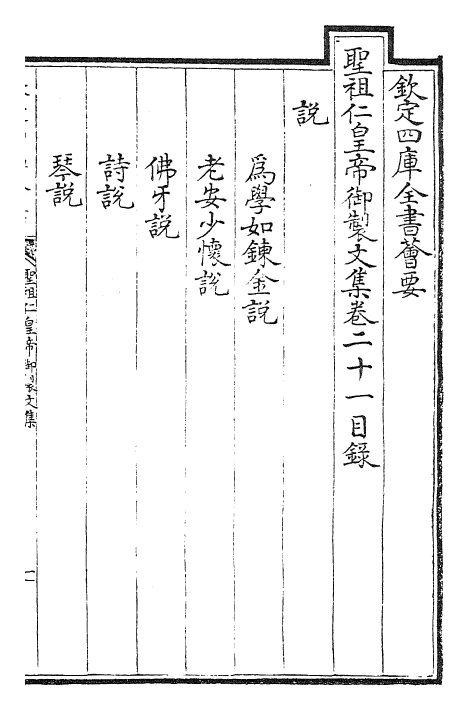 欽定四庫全書薈要
聖祖仁皇帝御製文集卷二十一目錄
説
爲學如鍊金説
老安少懷説
佛牙説
詩説
琴説
聖祖仁皇帝御製文集